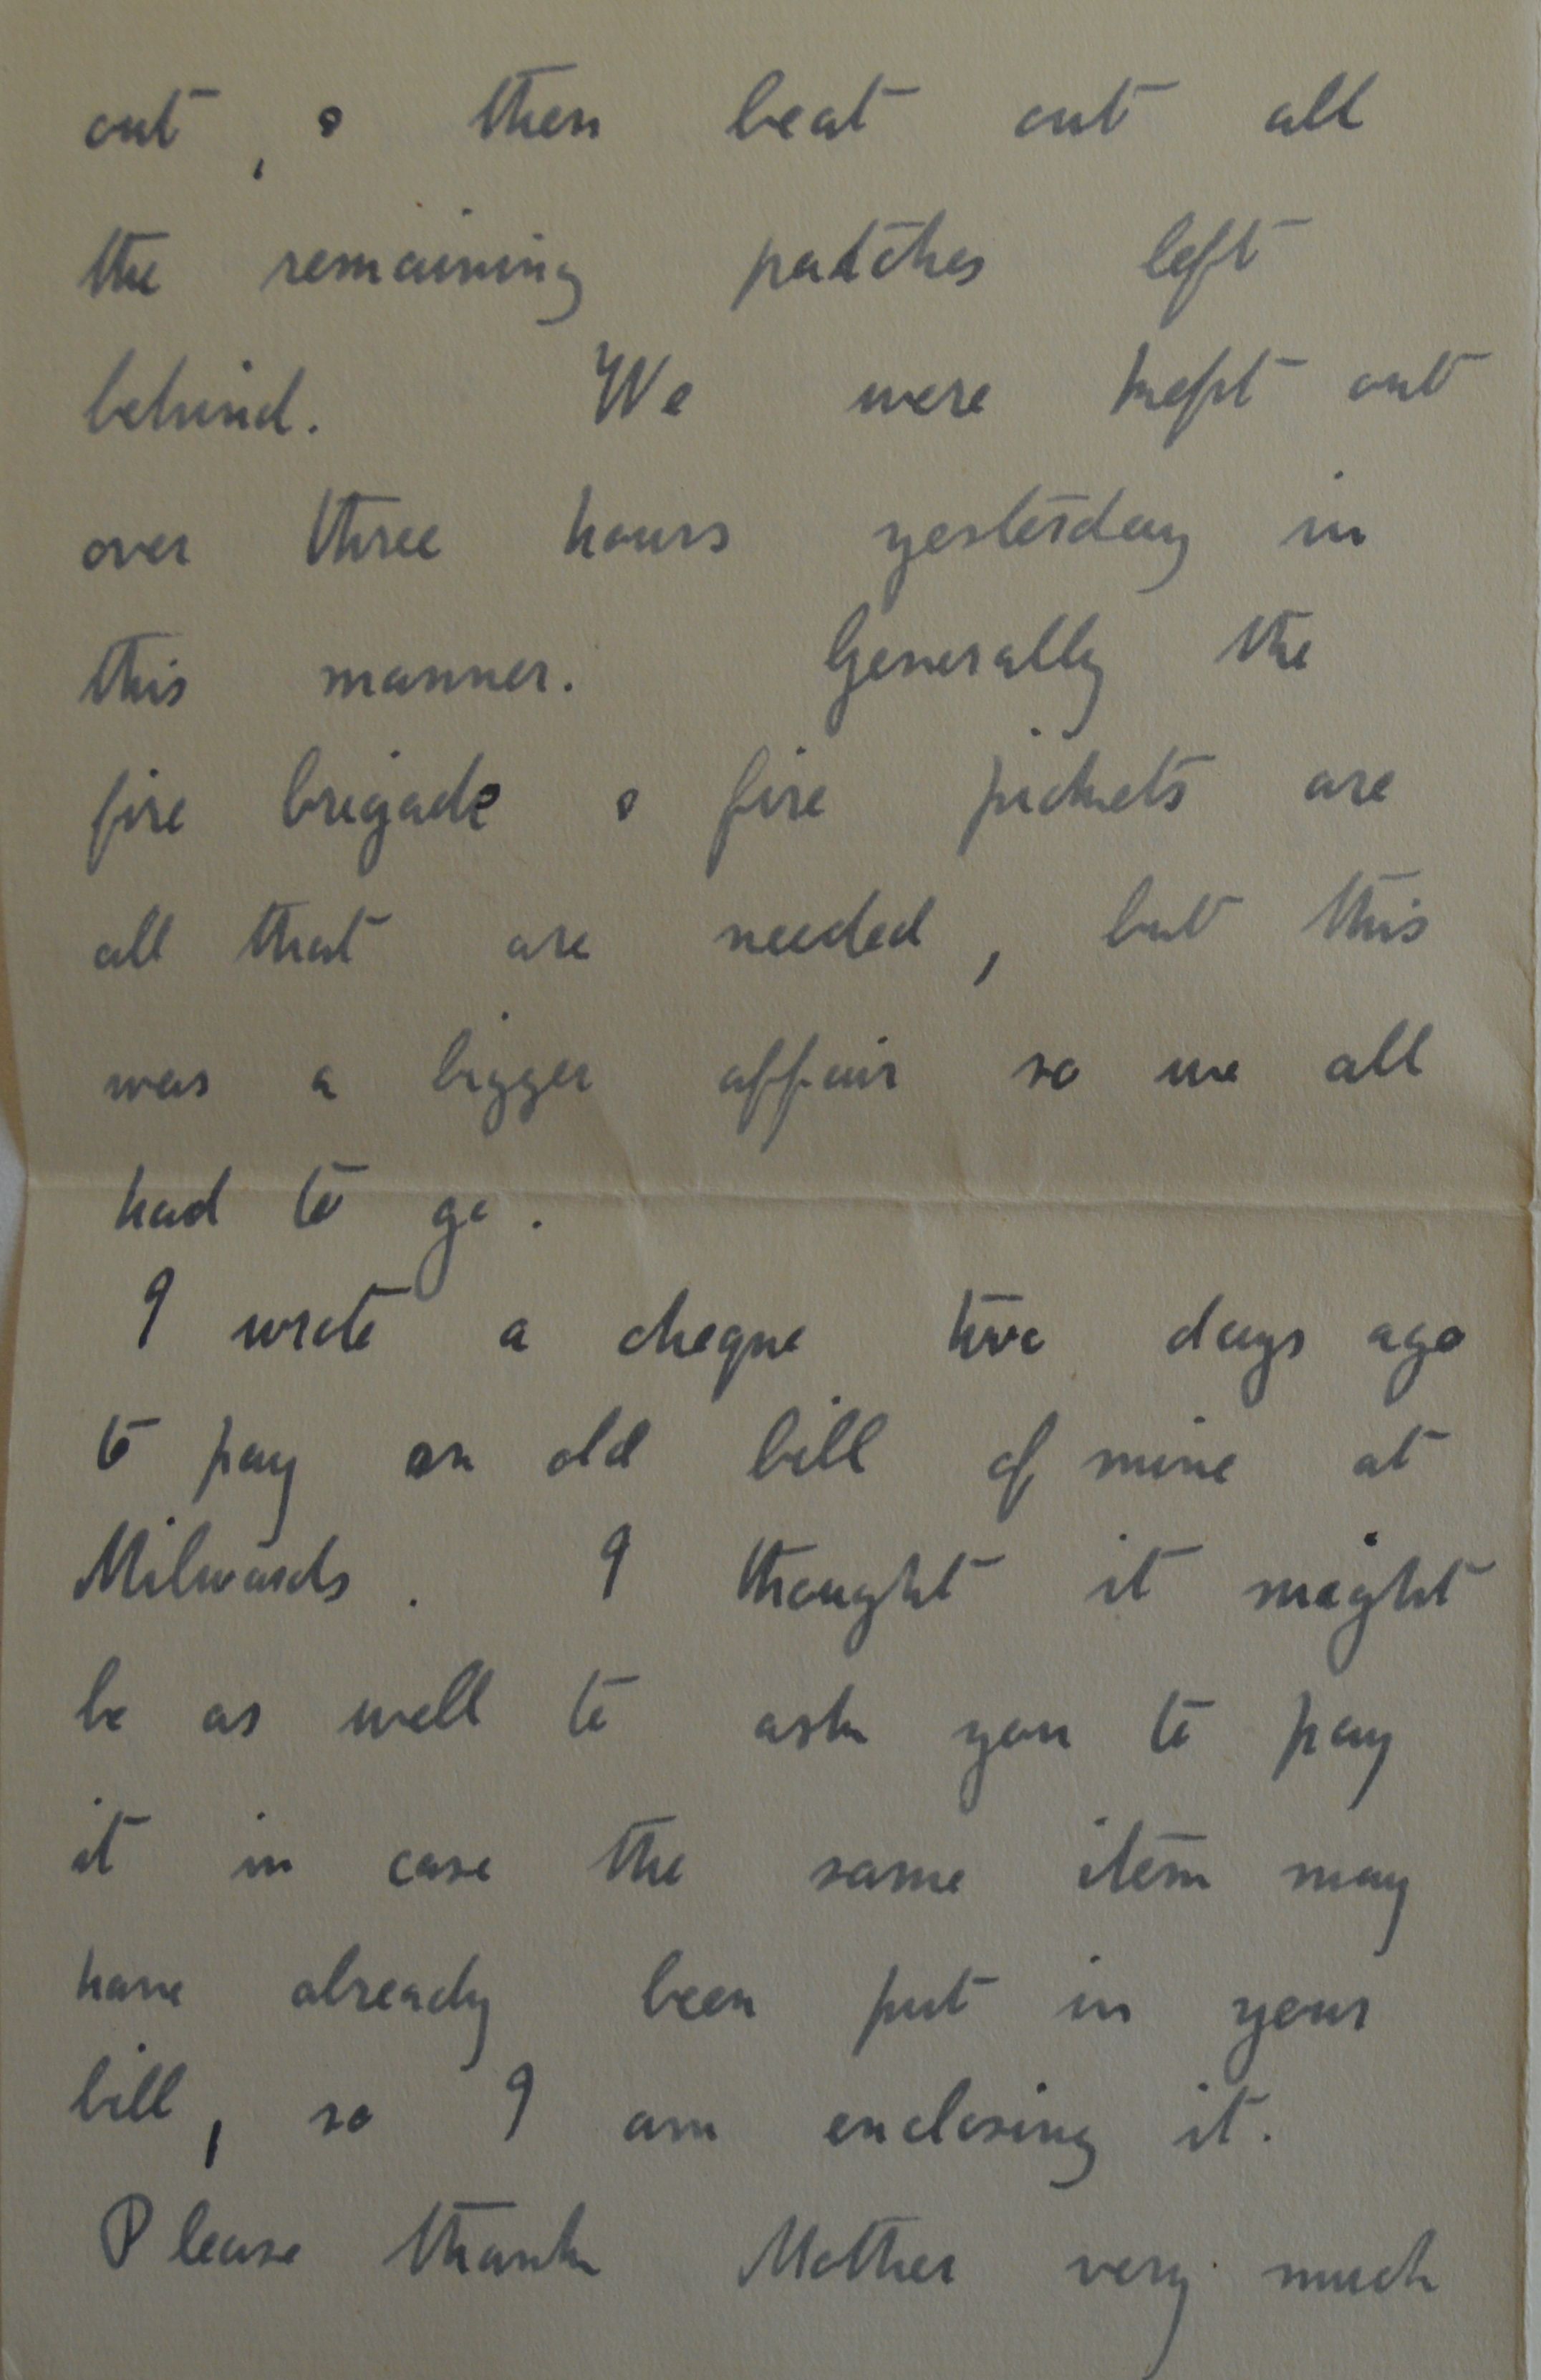 out, & then beat out all
the remaining patches left
behind. We were kept out
over three hours yesterday in
this manner. Generally the
fire brigade & fire pickets are
all that are needed, but this
was a bigger affair so we all
had to go.
I wrote a cheque two days ago
to pay an old bill of mine at
Milwards. I thought it might
be as well to ask you to pay
it in case the same item may
have already been put in your
bill, so I am enclosing it.
Please thank Mother very much